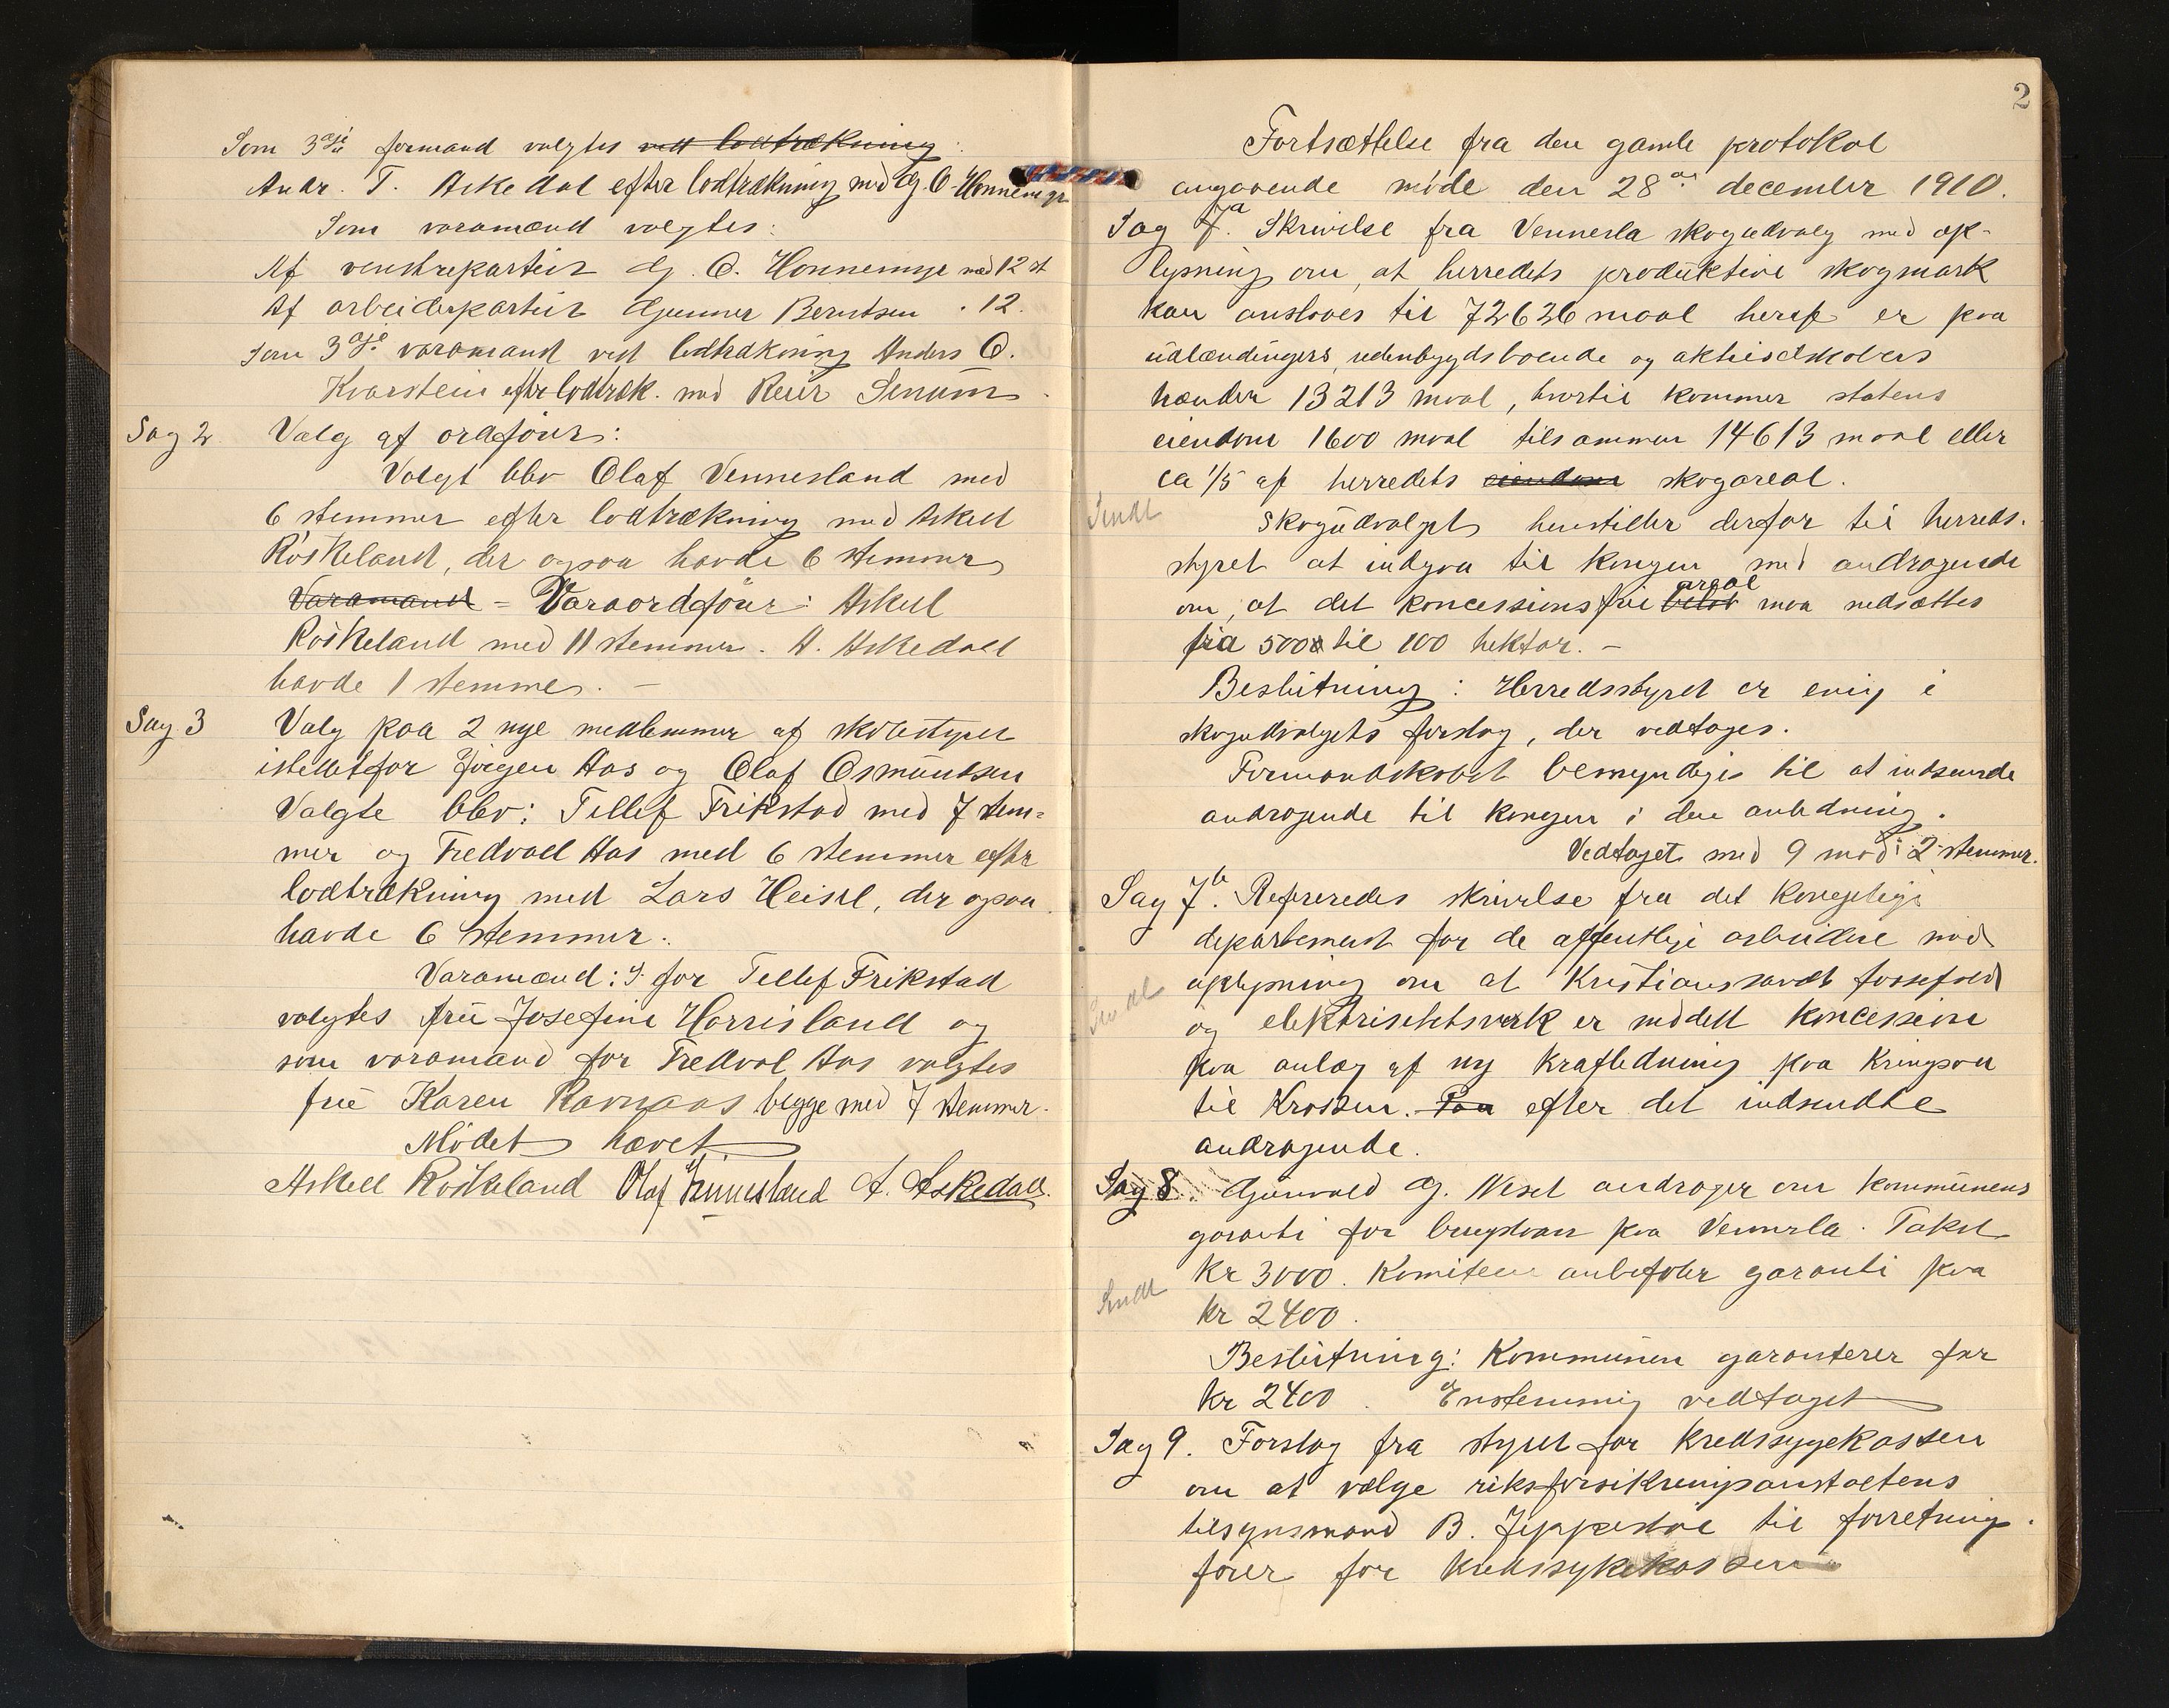 Som 3die formand valgtes ved lodtrækning:
Andr. T. Askedal efter lodtrækning med Gj. O. Honnemyr
Som varamænd valgtes:
Af venstrepartiet Gj. O. Honnemyr med 12 st
Af arbeiderpartiet Gunner Berntsen " 12.
Som 3dje varamand ved lodtrækning Anders O.
Kvarstein efter lodtræk. med Reier Senum
Sag 2 Valg af ordfører:
Valgt blev Olaf Vennesland med
6 stemmer efter lodtrækning med Askell
Röskeland, der ogsaa havde 6 stemmer
Varamand - Varaordfører: Askell
Röskeland med 11 stemmer. A. Askedall
havde 1 stemme. —
Sag 3 Valg paa 2 nye medlemmer af skolestyret
istedetfor Jørgen Aas og Olaf Osmundsen
Valgte blev: Tellef Frikstad med 7 stem=
mer og Tredvall Aas med 6 stemmer efter
lodtrækning med Lars Heisel, der ogsaa
havde 6 stemmer.
Varamænd: for Tellef Frikstad
valgtes frü Josefine Horrisland og
som varamand for Tredval Aas valgtes
frü Karen Ravnaas begge med 7 stemmer.
Mödet hævet
Askell Röskeland Olaf Vennesland A. Askedall.
2
Fortsættelse fra den gamle protokol
angaaende møde den 28de december 1910.
Sag 7a. Skrivelse fra Vennesla skogudvalg med op-
lysning om, at herredets produktive skogmark
kan anslaaes til 72626 maal heraf er paa
udlændingers, udenbygdsboende og aktieselskabers
hænder 13213 maal, hvortil kommer statens
eiendom 1600 maal tilsammen 14613 maal eller
ca 1/5 af herredets eiendom skogareal.
Sendt
Skogudvalget henstiller derfor til herreds-
styret at indgaa til kongen med andragende
om, at det koncessionsfrie beløb areal maa nedsættes
fra 500 til 100 hektar. —
Beslutning: Herredsstyret er enig i
skogudvalgets forslag, der vedtages.
Formandskabet bemyndiges til at indsende
andragende til kongen i den anledning.
Vedtaget med 9 mod 2 stemmer.
Sag 7b. Refereredes skrivelse fra det kongelige
departement for de offentlige arbeider med
oplysning om at Kristianssands fossefald
Sendt
og elektrisitetsverk er meddelt koncession
paa anlæg af ny kraftledning paa Kringsaa
til Krossen. Paa efter det indsendte
andragende.
Sag 8. Gunvald Gj. Vesel andrager om kommunens
garanti for brugslaan paa Vennesla. Takst
kr 3000. Komiteen anbefaler garanti paa
Sendt
kr 2400.
Beslutning: Kommunen garanterer for
kr 2400. Enstemmig vedtaget
Sag 9. Forslag fra styret for kredssygekassen
om at vælge riksforsikringsanstaltens
tilsynsmand B. Jeppestøl til forretning-
fører for kredssykekassen